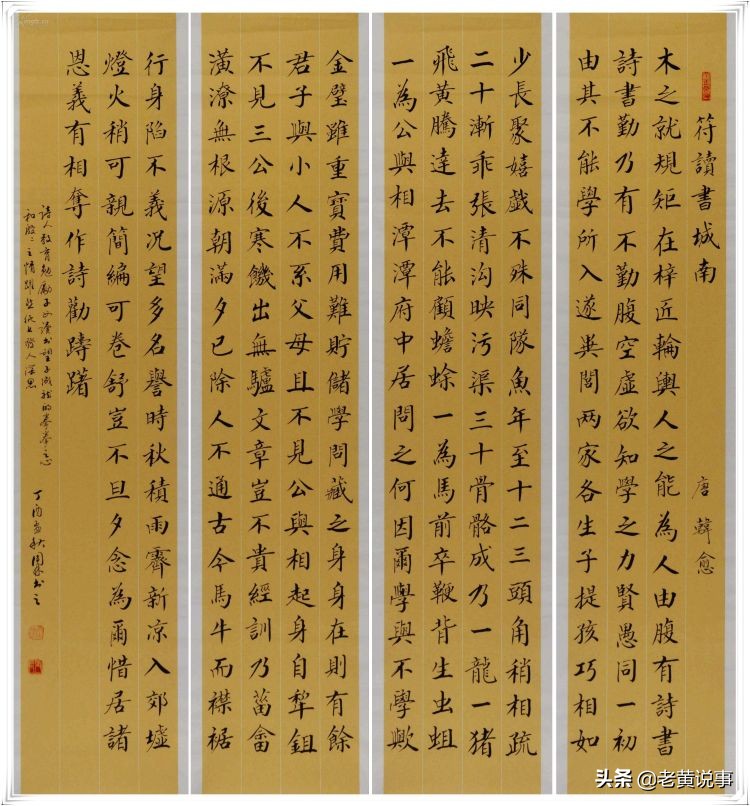 符讀書城南 唐 韓愈
木之就規矩在梓匠輪輿人之能為人由腹有詩書
詩書勤乃有不勤腹空虛欲知學之力賢愚同一初
由其不能學所入遂異閭兩家各生子提孩巧相如
少長聚嬉戲不殊同隊魚年至十二三頭角稍相疏
二十漸乖張清沟映污渠三十骨骼成乃一龍一猪
飛黃騰達去不能顧蟾蜍一為馬前卒鞭背生虫蛆
一為公與相潭潭府中居問之何因爾學與不學歟
金璧雖重寶費用難貯儲學問藏之身身在則有餘
君子與小人不系父母且不見公與相起身自犁鉏
不見三公後寒饑出無驢文章豈不貴經訓乃菑畬
潢潦無根源朝滿夕已除人不通古今馬牛而襟裾
行身陷不義况望多名譽時秋積雨霽新凉入郊墟
燈火稍可親簡編可卷舒豈不旦夕念為爾惜居諸
恩義有相奪作詩勸躊躇
詩人教育勉勵子女讀书望子成龍的拳拳之心
和殷殷之情躍然纸上發人深思
丁酉孟秋
头条 @老黄说事